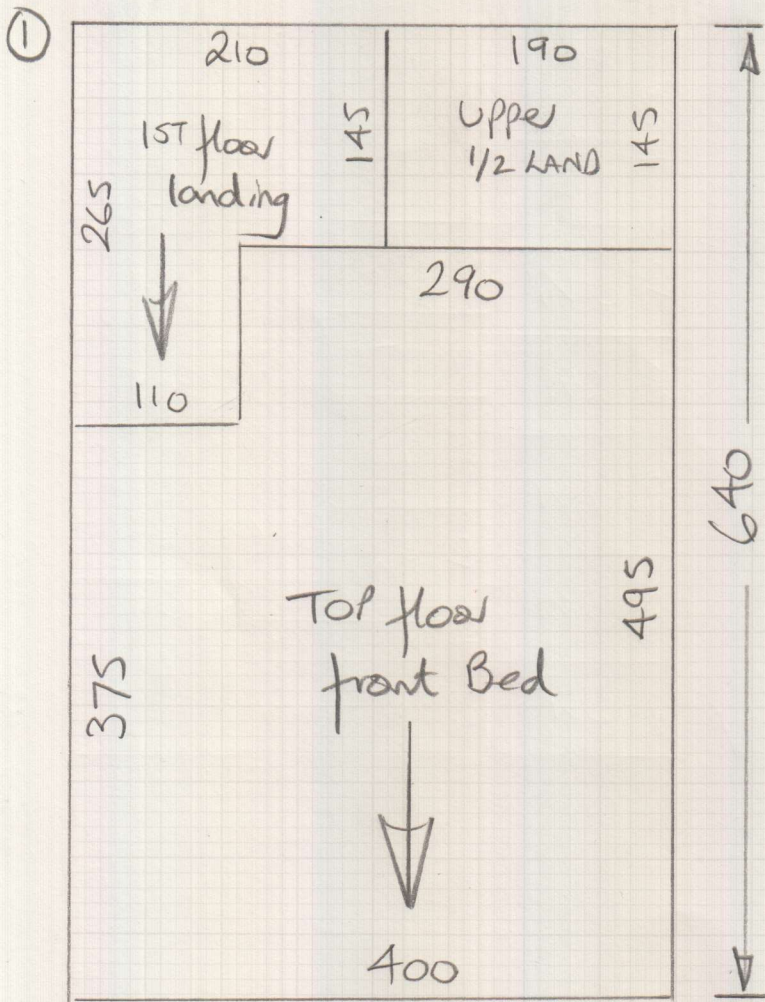 1
210
190
1ST floor
landing
145
Upper
1/2 LAND
145
265
290
110
640
TOP floor
front Bed
495
375
400